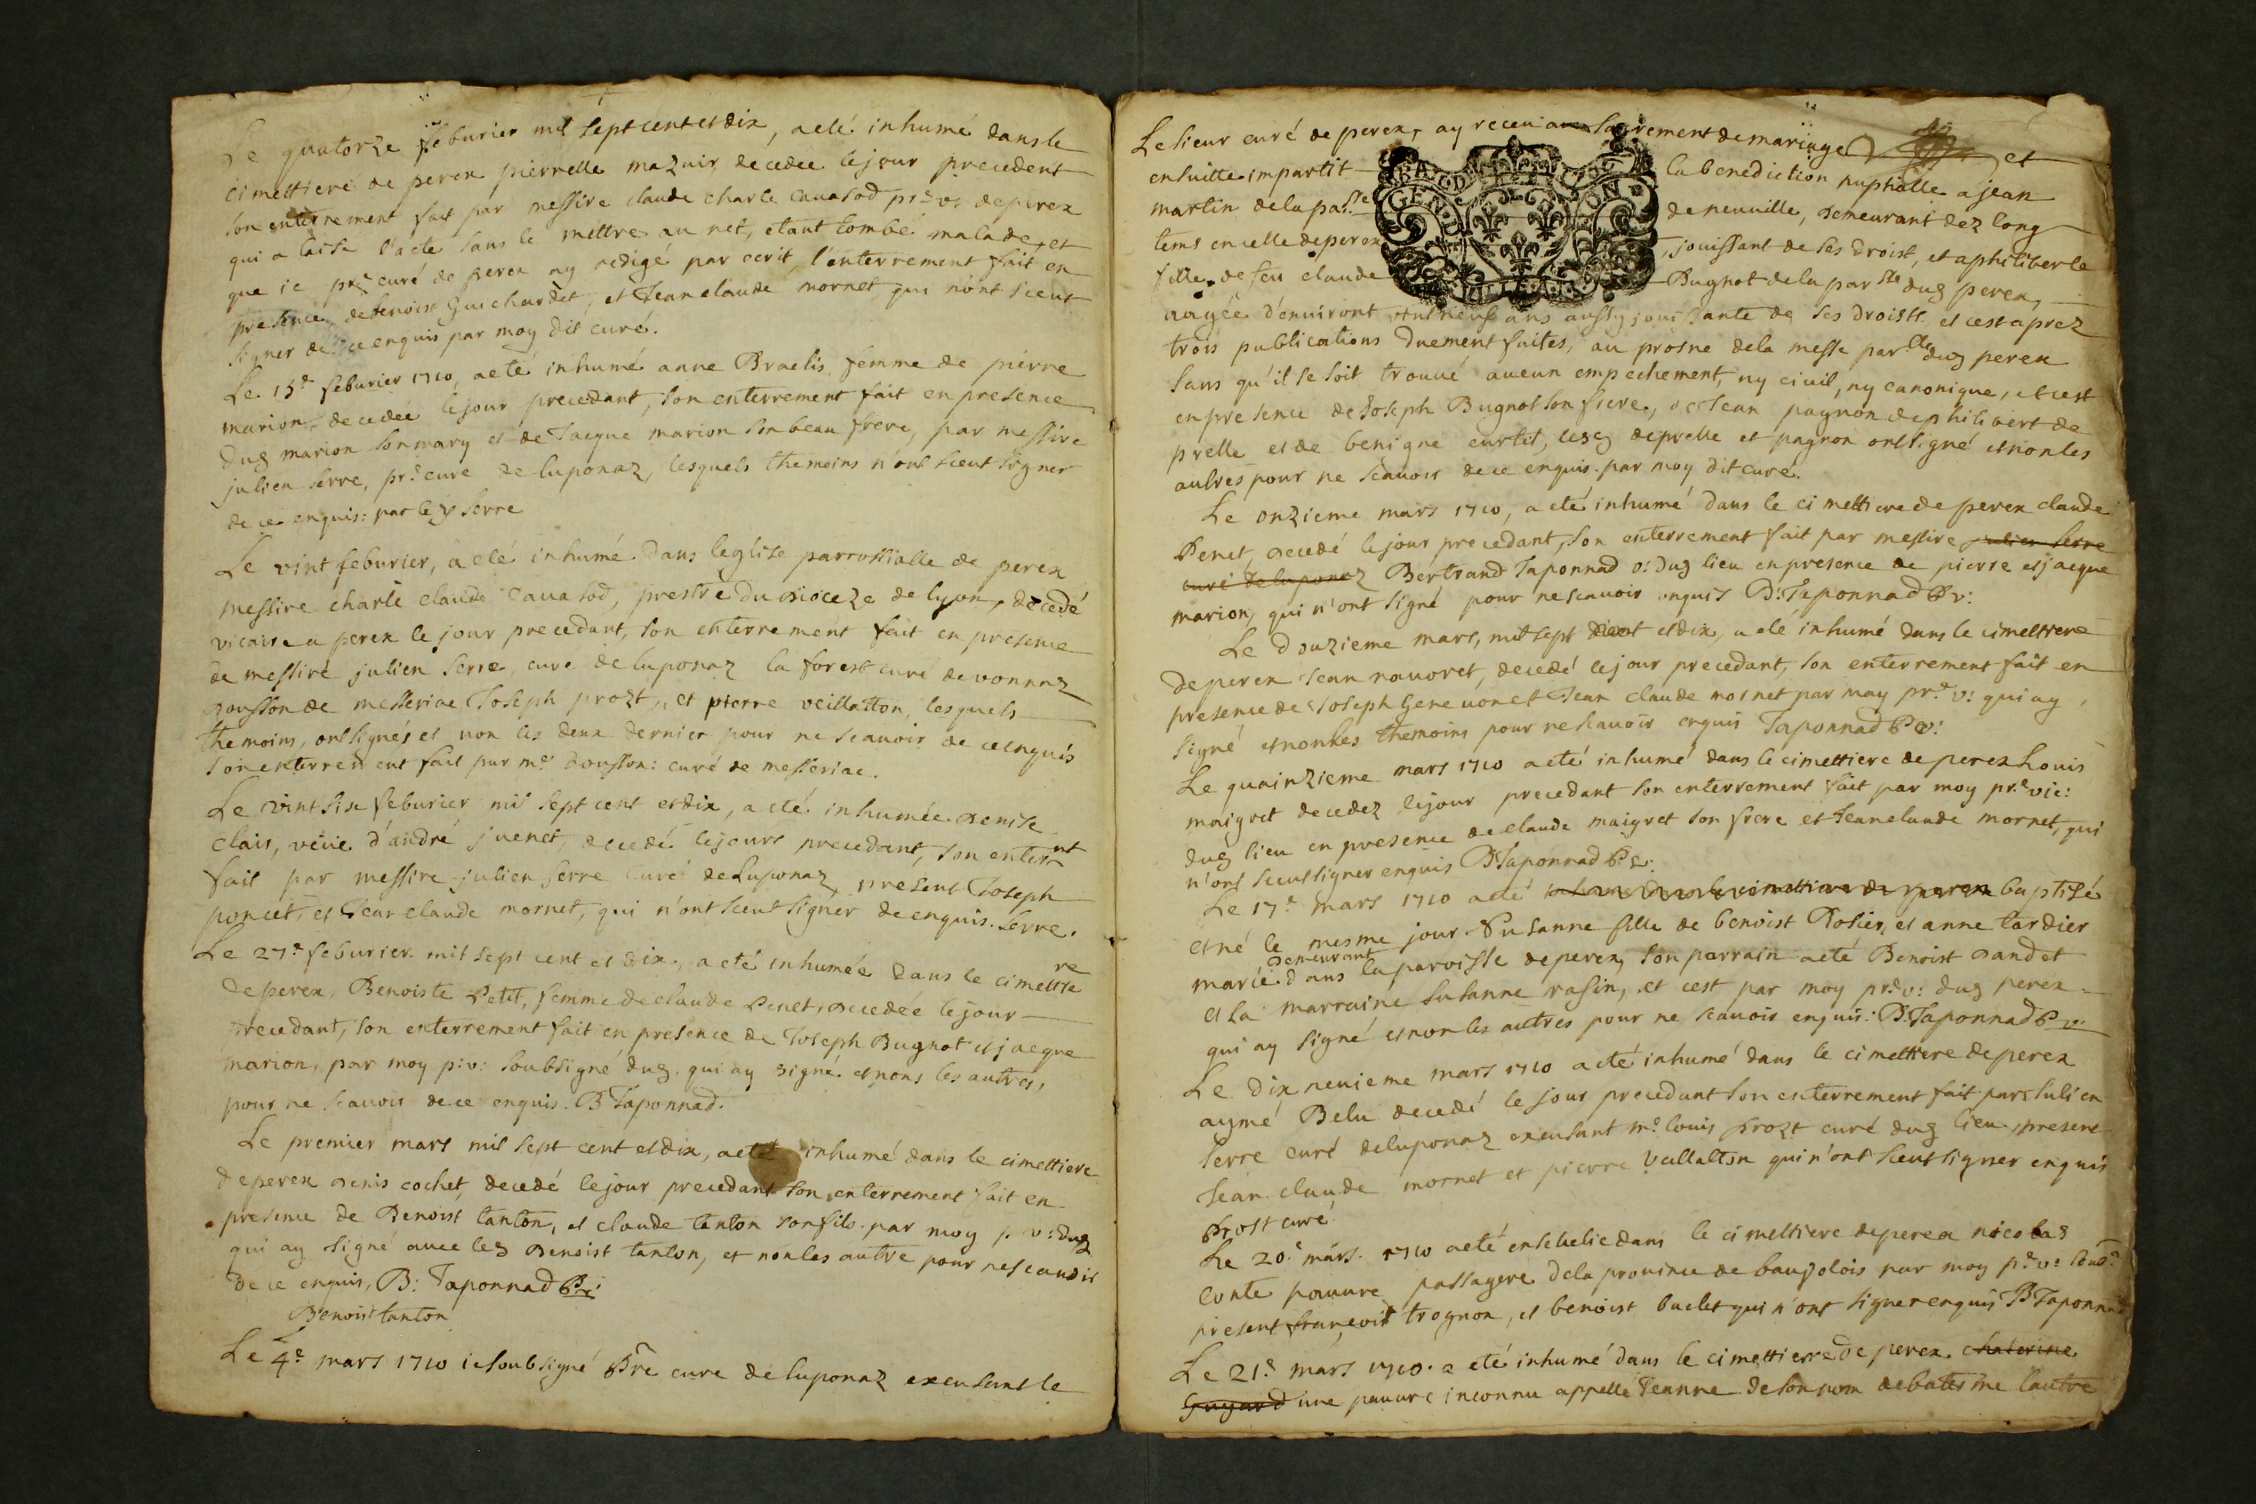 Le quatorze feburier mil sept cent et dix, a eté inhumé dans le
cimettiere de perex pierrelle mazuir decedee le jour precedent
son enterrement fait par messire claude charle cavasod pr.e v. de perex
qui a laisé l'acte sans le mettre au net, etant tombé malade, et
que ie pr.e curé de perex ay redigé par ecrit, l'enterrement fait en
presence de benoist Guichardet, et Jean claude mornet qui n'ont sceut
signer de ce enquis par moy dit curé.
Le 15.e feburier 1710, a eté inhumé anne Braelis femme de pierre
marion, decedée le jour precedant, son enterrement fait en presence
dug marion son mary et de Jacque marion son beau frere, par messire
julien serre, pr.e curé de luponaz, lesquels themoins n'ont sceut signer
de ce enquis: par le g serre
Le vint feburier, a eté inhumé dans l'eglise parrossialle de perex
messire charle claude cavasod, prestre du dioceze de lyon, decedé
vicaire a perex le jour precedant, son enterrement fait en presence
de messire julien serre, curé de luponaz la forest curé de vonnaz
dousson de messeriac Joseph prozt, et pierre veillatton, lesquels
themoins, ont signés et non les deux dernier pour ne scavoir de ce enquis
son enterrement fait par m.e dousson: curé de messeriac.
Le vint six feburier mil sept cent et dix, a eté inhumée denise
clair, veüe d'andré juenet, decedé le jours precedant, son enterrnt
fait par messire julien serre curé de Luponaz, present Joseph
poncet, et Jean claude mornet, qui n'ont sceut signer de enquis. Serre.
Le 27.e feburier mil sept cent et dix, a eté inhumée dans le cimettre
de perex, Benoiste Petit, femme de claude Penet, decedée le jour
precedant, son enterrement fait en presence de Joseph Bugnot et jacque
marion, par moy p: v: soubsigné dug. qui ay signé et nons les autres,
pour ne scavoir de ce enquis. B Taponnad.
Le premier mars mil sept cent et dix, a eté inhumé dans le cimettiere
de perex denis cochet, decedé le jour precedant son enterrement fait en
presence de Benoist tanton, et claude tanton son fils. par moy p v: dug
qui ay signé avec led Benoist tanton, et non les autre pour ne scavoir
de ce enquis, B: Taponnad P v:
Benoist tanton
Le 4.e mars 1710 ie soubsigné Pre curé de luponaz exensant le
Le sieur curé de perex, ay receu au sacrement de mariage et
ensuitte impartit la benediction nuptialle a jean
martin de la pas.se de neuville, demeurant dez long
tems en celle de perex, jouissant de ses droist, et a philiberte
fille de feu claude Bugnot de la par.sse dug perex,
GEN. D
aagée d'environt vint neuf ans aussy jouissante de ses droists et cest aprez
trois publications duement faites, au prosne de la messe par.elle dug perex
sans qu'il se soit trouvé aucun empechement, ny civil, ny canonique, et cest
en presence de Joseph Bugnot son frere, de Jean pagnon de philibert de
prelle et de benigne curtet, lesq deprelle et pagnon ont signé et non les
autres pour ne scavoir de ce enquis par moy dit curé.
Le onzieme mars 1710, a eté inhumé dans le cimettiere de perex claude
Penet, decedé le jour precedant, son enterrement fait par messire julien serre
curé de luponaz Bertrand Taponnad v: dug lieu en presence de pierre et jacque
marion, qui n'ont signé pour ne scavoir enquis B: Taponnad P v:
Le douzieme mars, mil sept cent et dix, a eté inhumé dans le cimettiere
de perex Jean navoret, decedé le jour precedant, son enterrement fait en
presence de Joseph Genevon et Jean claude mornet par moy pr.e v: qui ay
signé et non les themoins pour ne scavoir enquis Taponnad P v:
Le quainzieme mars 1710 a eté inhumé dans le cimettiere de perex Louis
maigret decedez le jour precedant son enterrement fait par moy pr.e vic:
dug lieu en presence de claude maigret son frere et Jean claude mornet, qui
n'ont sceut signer enquis B Taponnad P v:
Le 17.e mars 1710 a eté inhumé dans le cimettiere de perex baptisé
et né le mesme jour Susanne fille de benoist Rosier, et anne tardier
demeurant
marié dans la paroisse de perex, son parrain a eté Benoist dandet
et sa marraine Susanne rasin, et cest par moy pr.e v: dug perex
qui ay signé et non les autres pour ne scavoir enquis: B. Taponnad P v:
Le dix neuieme mars 1710 a eté inhumé dans le cimettiere de perex
aymé Belu decedé le jour precedant son enterrement fait par Julien
Serre curé de luponaz exensant m.e louis prozt curé dug lieu, present
Jean claude mornet et pierre Veillatton qui n'ont sceut signer enquis
Prost curé
Le 20.e mars. 1710 a eté ensevelie dans le cimettiere de perex nicolas
conte pauvre passagere de la province de baujolois par moy p.e v: sous.e
present françois trognon, et benoist buclet qui n'ont signer enquis B Taponnad
Le 21.e mars 1710. a eté inhumé dans le cimettierre de perex chaterine
Guyard une pauvre inconnu appellé Jeanne de son nom de batesme l'autre